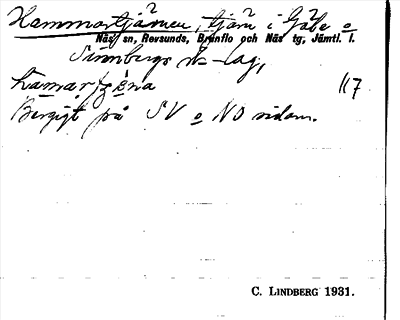 Kammartjärnen, tjärn i Gåle o
Näs sn, Revsunds, Brunflo och Näs tg, Jämtl. l.
Sinnbergs sk-lag,
kamartjɛ̀na 117
Bergigt på SV o NO sidorn.
C. LINDBERG 1931.